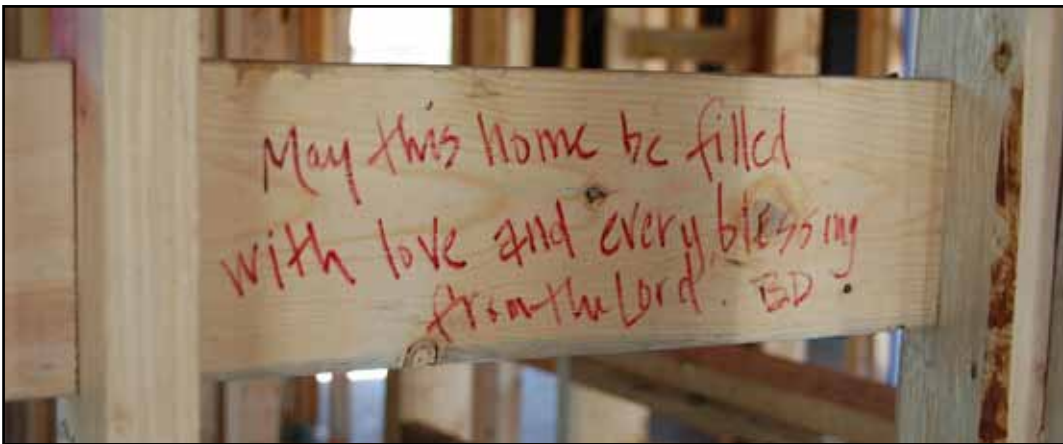 May this home be filled
with love and every blessing
from the Lord. BD